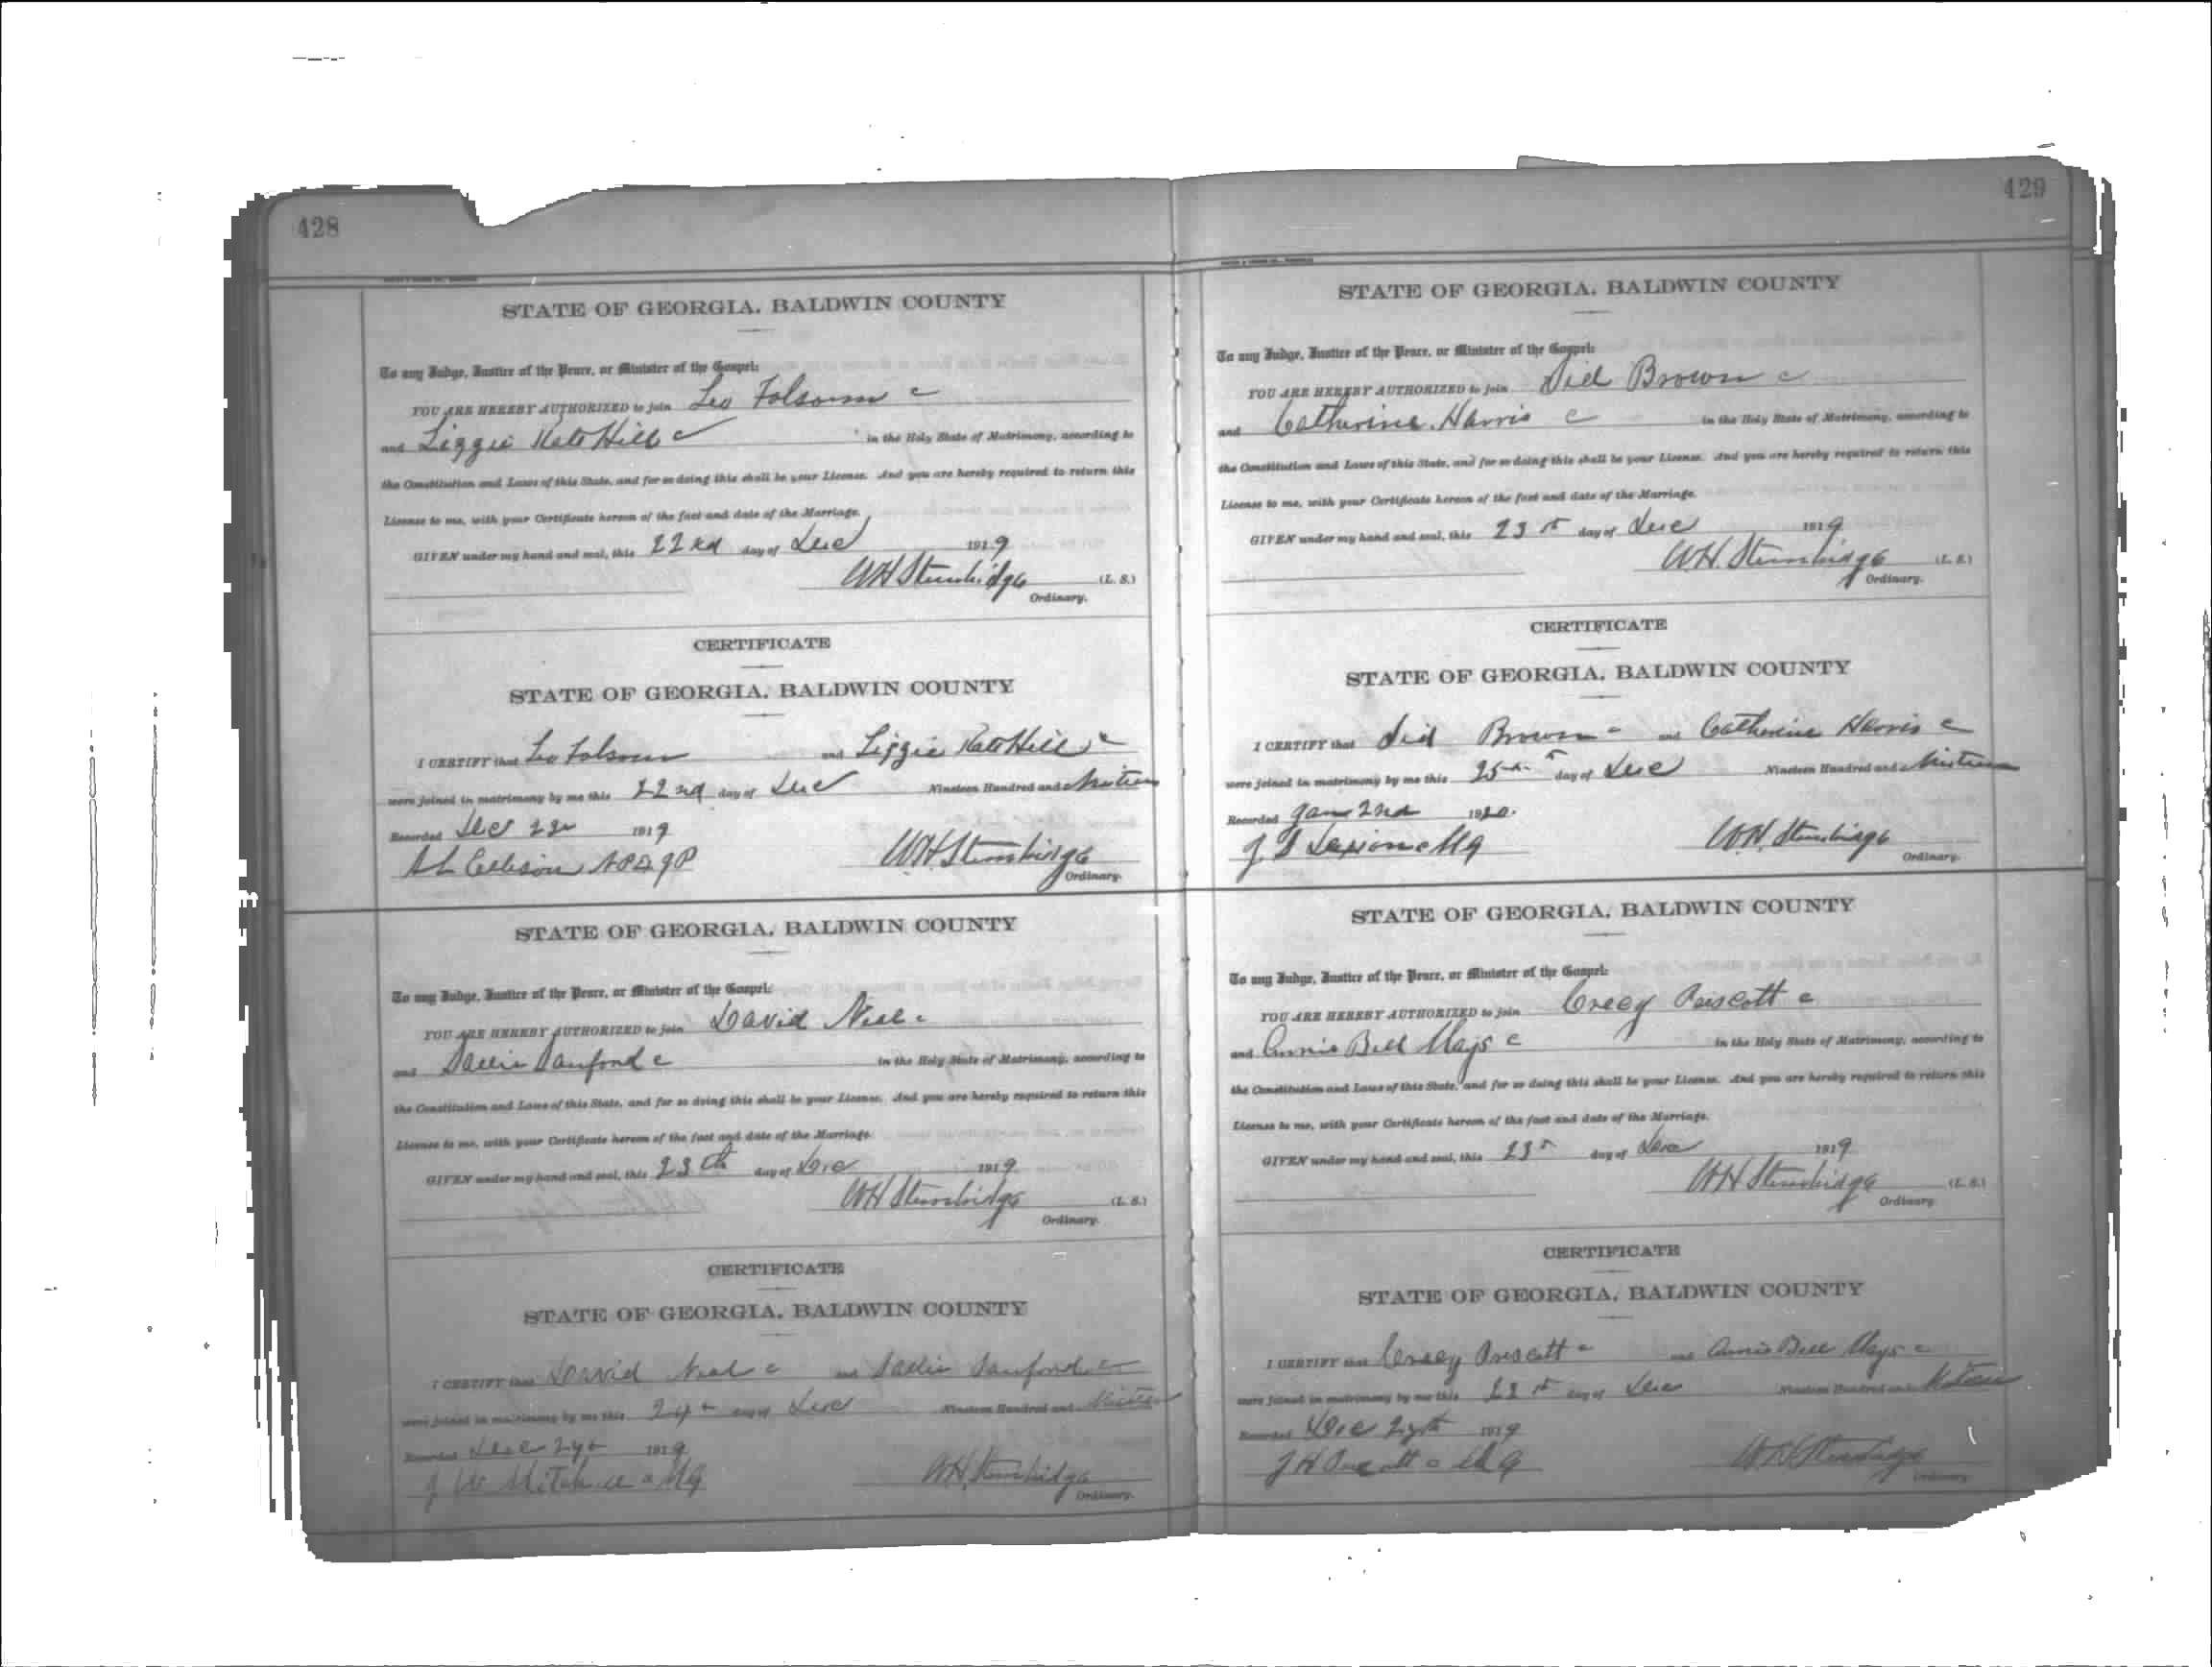 428
STATE OF GEORGIA, BALDWIN COUNTY
To any Judge, Justice of the Peace, or Minister of the Gospel:
YOU ARE HEREBY AUTHORIZED to join Leo Folsom c
and Lizzie Kate Hill c in the Holy State of Matrimony, according to
the Constitution and Laws of this State, and for so doing this shall be your License. And you are hereby required to return this
License to me, with your Certificate hereon of the fact and date of the Marriage.
GIVEN under my hand and seal, this 22nd day of Dec 1919
WH Stembridge (L. S.)
Ordinary.
CERTIFICATE
STATE OF GEORGIA, BALDWIN COUNTY
I CERTIFY that Leo Folsom and Lizzie Kate Hill c
were joined in matrimony by me this 22nd day of Dec Nineteen Hundred and
Recorded Dec 22 1919
Ellison WH Stembridge
Ordinary.
STATE OF GEORGIA, BALDWIN COUNTY
To any Judge, Justice of the Peace, or Minister of the Gospel:
YOU ARE HEREBY AUTHORIZED to join David Neal c
and Sallie Sanford c in the Holy State of Matrimony, according to
the Constitution and Laws of this State, and for so doing this shall be your License. And you are hereby required to return this
License to me, with your Certificate hereon of the fact and date of the Marriage.
GIVEN under my hand and seal, this 23th day of Dec 1919
WH Stembridge (L. S.)
Ordinary.
CERTIFICATE
STATE OF GEORGIA, BALDWIN COUNTY
I CERTIFY that David Neal c and Sallie Sanford c
were joined in matrimony by me this day of Dec Nineteen Hundred and
Recorded Dec 1919
J W MG WH Stembridge
Ordinary.
429
STATE OF GEORGIA, BALDWIN COUNTY
To any Judge, Justice of the Peace, or Minister of the Gospel:
YOU ARE HEREBY AUTHORIZED to join Brown c
and Catherine Harris c in the Holy State of Matrimony, according to
the Constitution and Laws of this State, and for so doing this shall be your License. And you are hereby required to return this
License to me, with your Certificate hereon of the fact and date of the Marriage.
GIVEN under my hand and seal, this 23 day of Dec 1919
WH. Stembridge (L. S.)
Ordinary.
CERTIFICATE
STATE OF GEORGIA, BALDWIN COUNTY
I CERTIFY that Brown c and Catherine Harris c
were joined in matrimony by me this 25 day of Dec Nineteen Hundred and
Recorded Jan 2nd 1920.
J MG W.H. Stembridge
Ordinary.
STATE OF GEORGIA, BALDWIN COUNTY
To any Judge, Justice of the Peace, or Minister of the Gospel:
YOU ARE HEREBY AUTHORIZED to join Creey Priscott c
and Annie Bell Mays c in the Holy State of Matrimony, according to
the Constitution and Laws of this State, and for so doing this shall be your License. And you are hereby required to return this
License to me, with your Certificate hereon of the fact and date of the Marriage.
GIVEN under my hand and seal, this 23 day of Dec 1919
WH Stembridge (L. S.)
Ordinary.
CERTIFICATE
STATE OF GEORGIA, BALDWIN COUNTY
I CERTIFY that Creey Prescott c and Annie Bell Mays c
were joined in matrimony by me this 23 day of Dec Nineteen Hundred and
Recorded Dec 1919
J H MG WH Stembridge
Ordinary.